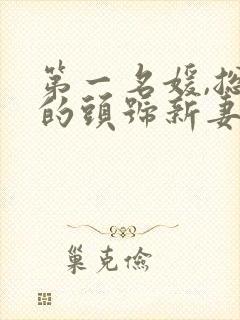 第一名媛,
的頭號新妻
巢克儉